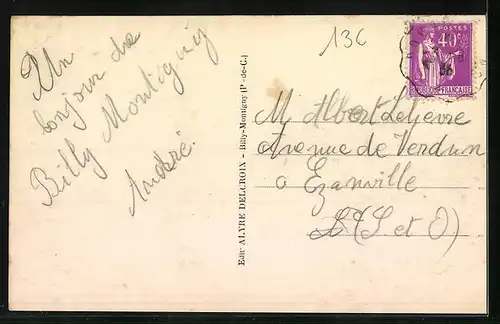 Un
bonjour de
Billy Montigny
André.
Edit. ALYRE DELCROIX - Billy-Montigny (P.-de-C.)
13C
POSTES
40c
FRANÇAISE
M Albert Lelievre
Avenue de Verdun
a Ezanville
(S et O)